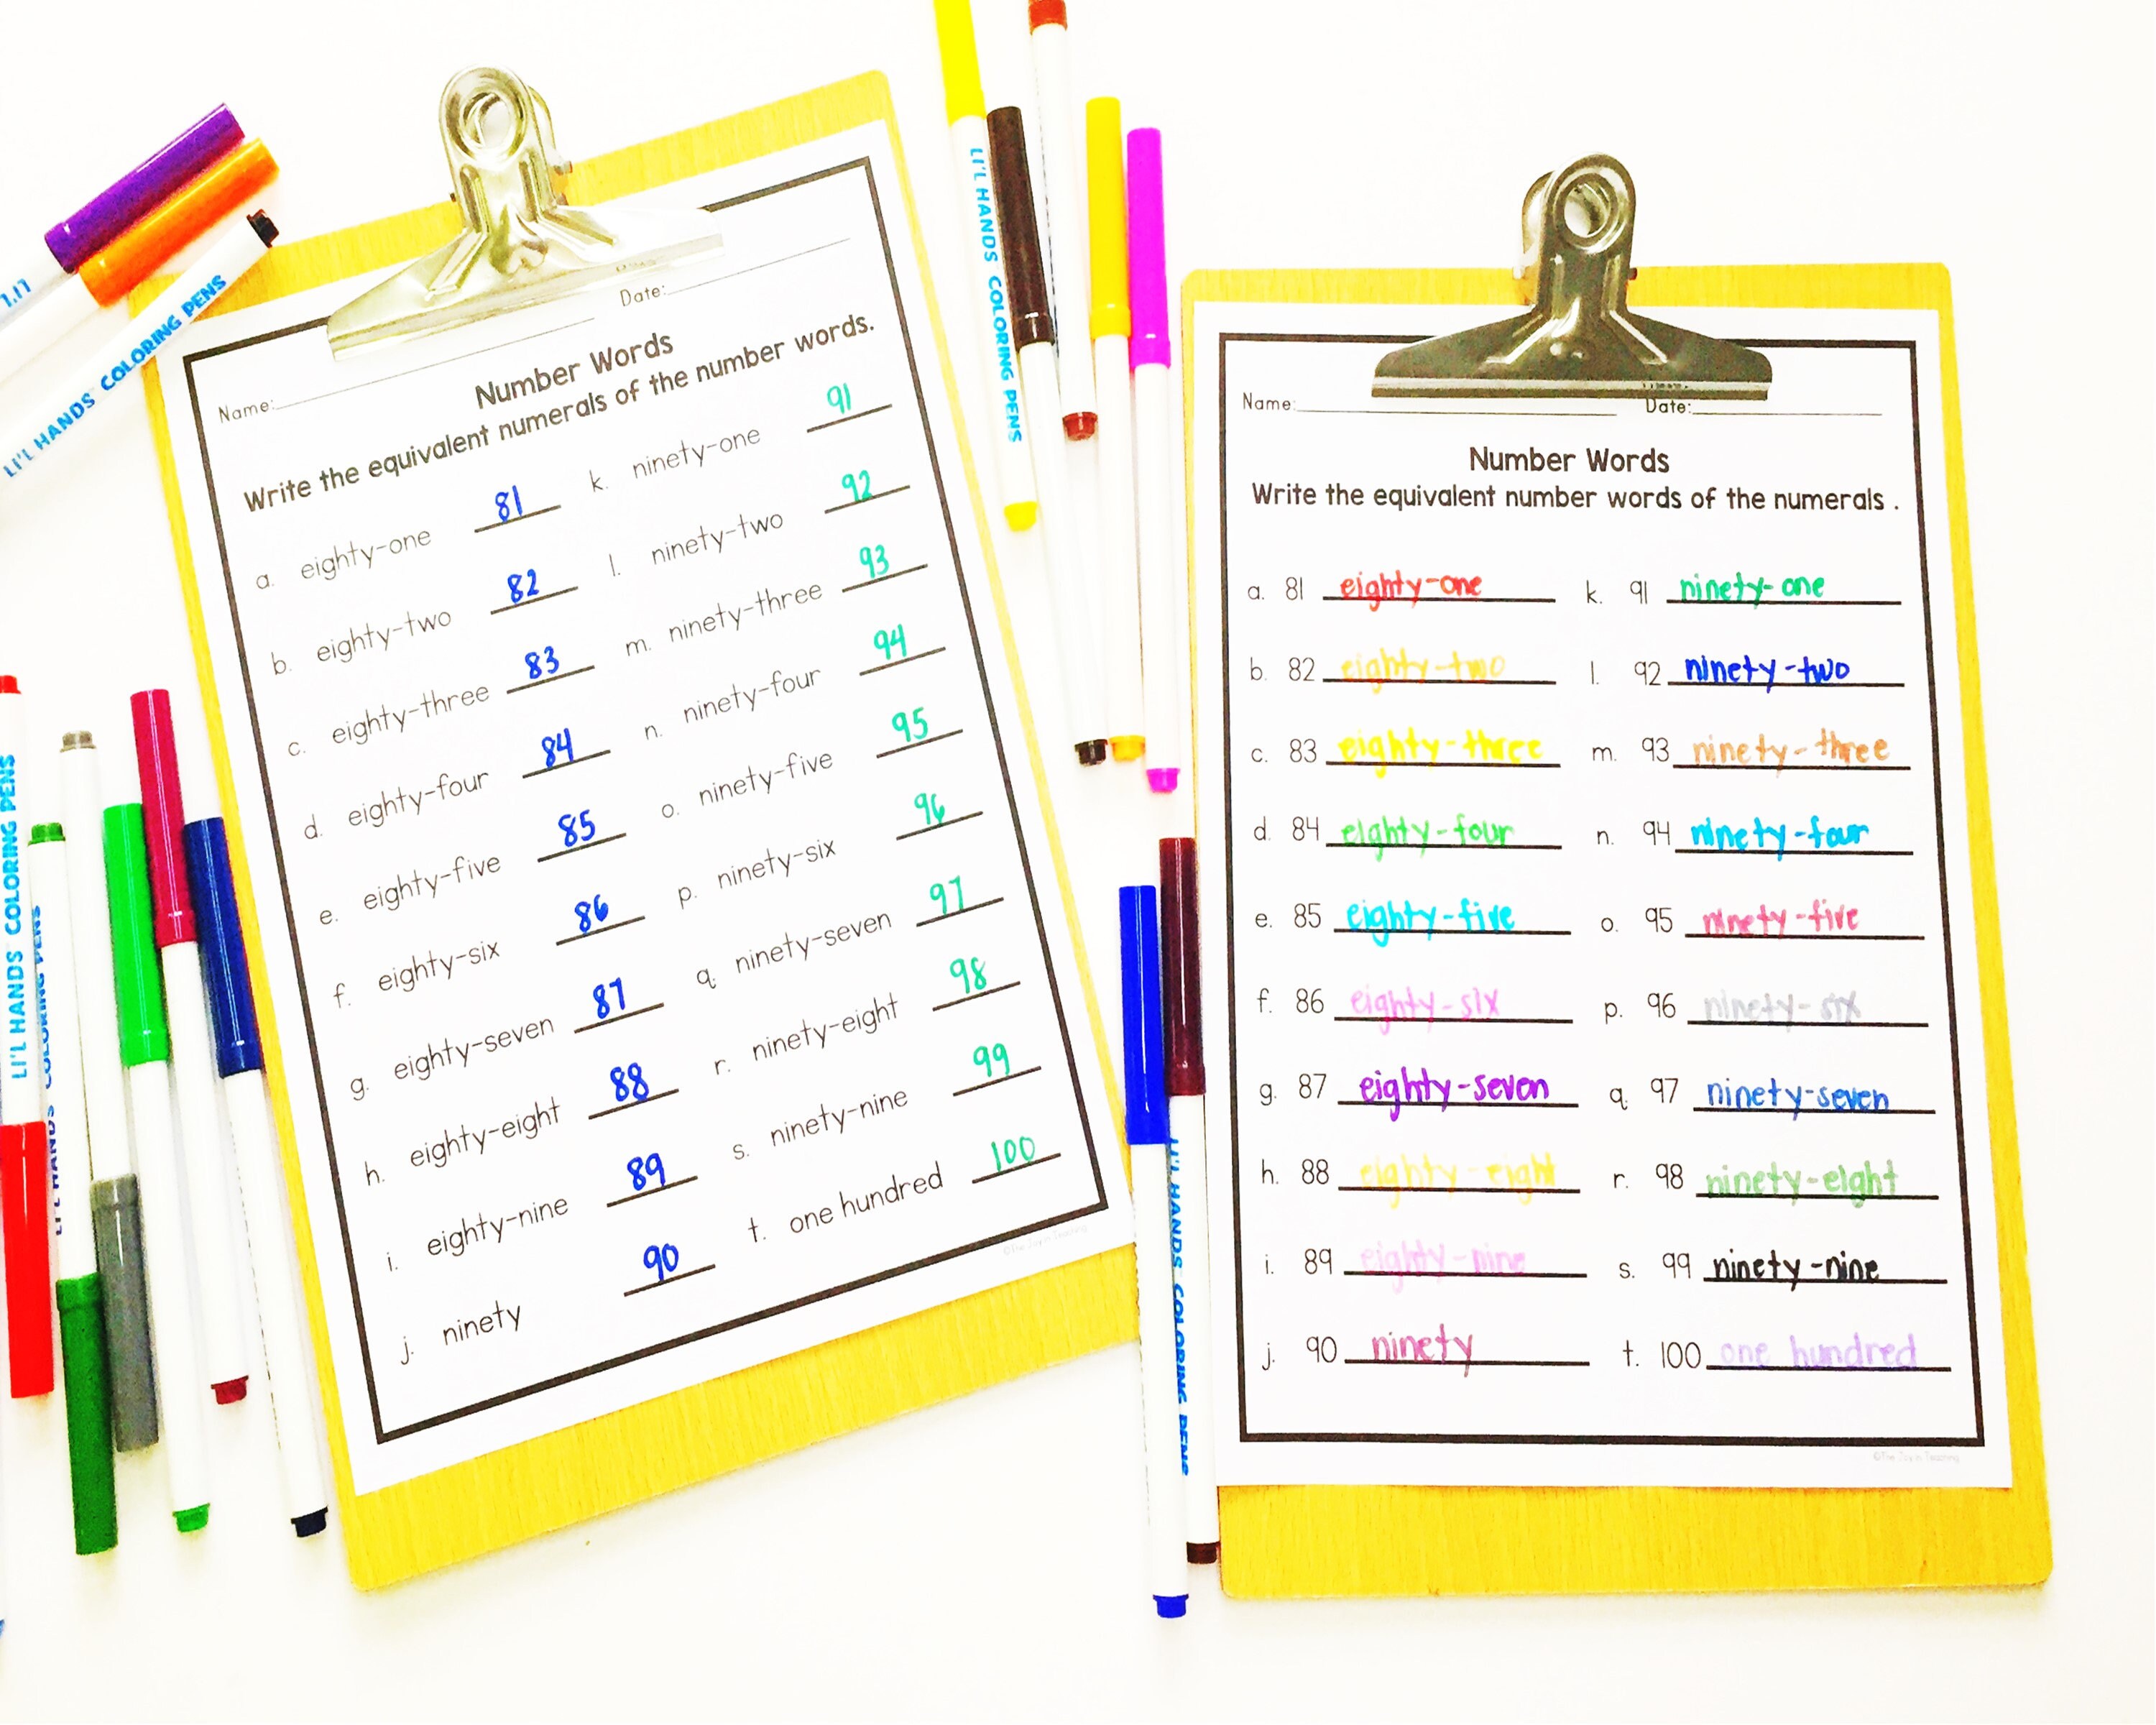 LI'L HANDS COLORING PENS
Name: Date:
Number Words
Write the equivalent numerals of the number words.
a. eighty-one 81
b. eighty-two 82
c. eighty-three 83
d. eighty-four 84
e. eighty-five 85
f. eighty-six 86
g. eighty-seven 87
h. eighty-eight 88
i. eighty-nine 89
j. ninety 90
k. ninety-one 91
l. ninety-two 92
m. ninety-three 93
n. ninety-four 94
o. ninety-five 95
p. ninety-six 96
q. ninety-seven 97
r. ninety-eight 98
s. ninety-nine 99
t. one hundred 100
©The Joy in Teaching
LI'L HANDS COLORING PENS
LI'L HANDS COLORING PENS
LI'L HANDS COLORING PENS
LI'L HANDS COLORING PENS
Name: Date:
Number Words
Write the equivalent number words of the numerals .
a. 81 eighty-one
b. 82 eighty-two
c. 83 eighty-three
d. 84 eighty-four
e. 85 eighty-five
f. 86 eighty-six
g. 87 eighty-seven
h. 88 eighty-eight
i. 89 eighty-nine
j. 90 ninety
k. 91 ninety-one
l. 92 ninety-two
m. 93 ninety-three
n. 94 ninety-four
o. 95 ninety-five
p. 96 ninety-six
q. 97 ninety-seven
r. 98 ninety-eight
s. 99 ninety-nine
t. 100 one hundred
©The Joy in Teaching